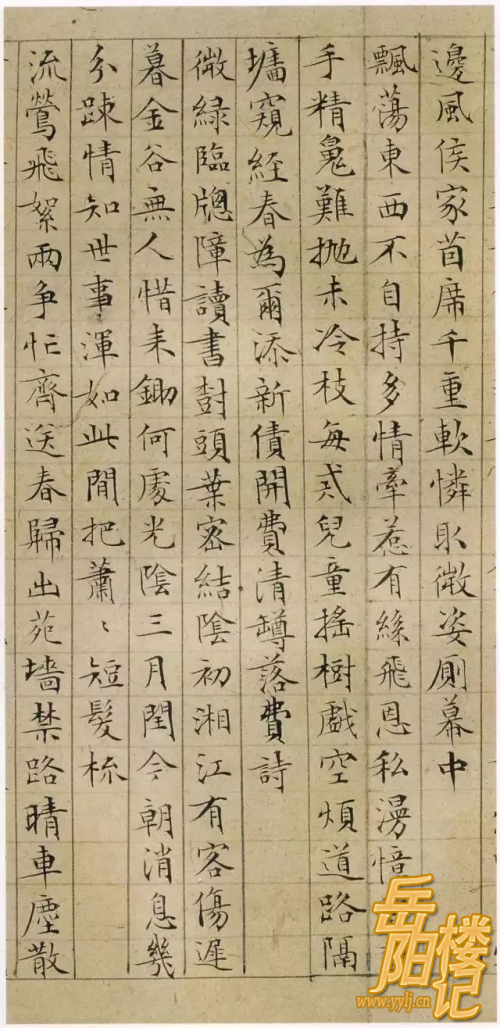 邊風侯家茵席千重軟憐取微姿廁幕中
飄蕩東西不自持多情牽惹有絲飛恩私漫憶
手精魂難拋未冷枝每兒童搖樹戲空煩道路隔
墻窺經春為爾添新債開費清罇落費詩
微綠臨牕障讀書樹頭葉密結陰初湘江有客傷遲
暮金谷無人惜耒鋤何處光陰三月閏今朝消息幾
分踈情知世事渾如此閒把蕭〻短髮梳
流鶯飛絮兩爭忙齊送春歸出苑墻禁路晴車塵散
岳阳楼记
www.yylj.cn